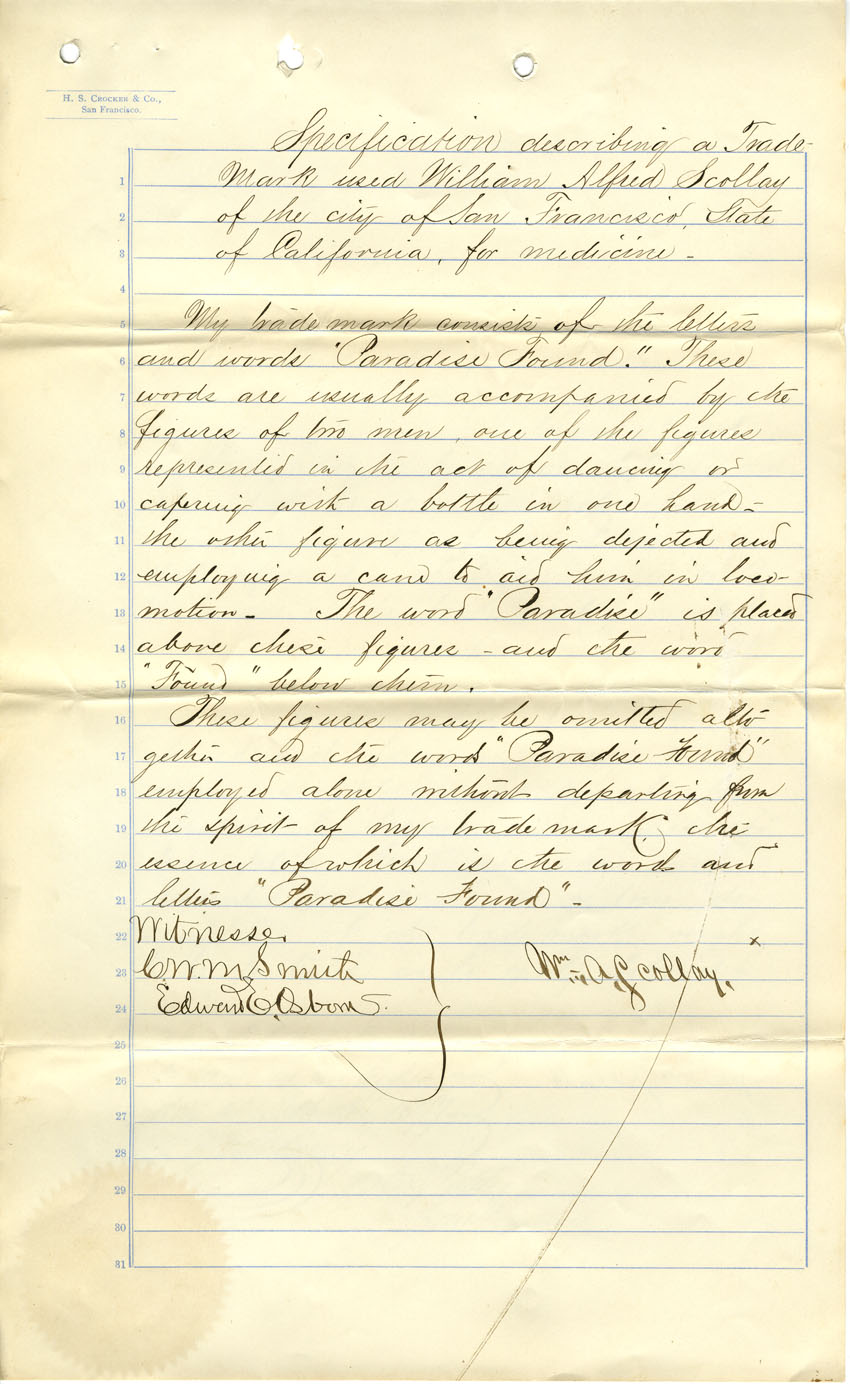 H. S. CROCKER & CO.,
San Francisco.
Specification describing a Trade-
Mark used William Alfred Scollay
1
of the city of San Francisco, State
2
of California, for medicine -
3
4
My trade mark consists of the letters
5
and words "Paradise Found." These
6
words are usually accompanied by the
7
figures of two men, one of the figures
8
represented in the act of dancing or
9
capering with a bottle in one hand -
10
the other figure as being dejected and
11
employing a cane to aid him in loco-
12
motion - The word "Paradise" is placed
13
above these figures - and the word
14
"Found" below them.
15
These figures may be omitted alto
16
gether and the words "Paradise Found"
17
employed alone without departing from
18
the spirit of my trade mark, the
19
essence of which is the words and
20
letters "Paradise Found" -
21
Witnesses
22
C. W. M. Smith
23
Wm. A. Scollay.
x
Edward E. Osborn
24
25
26
27
28
29
30
31